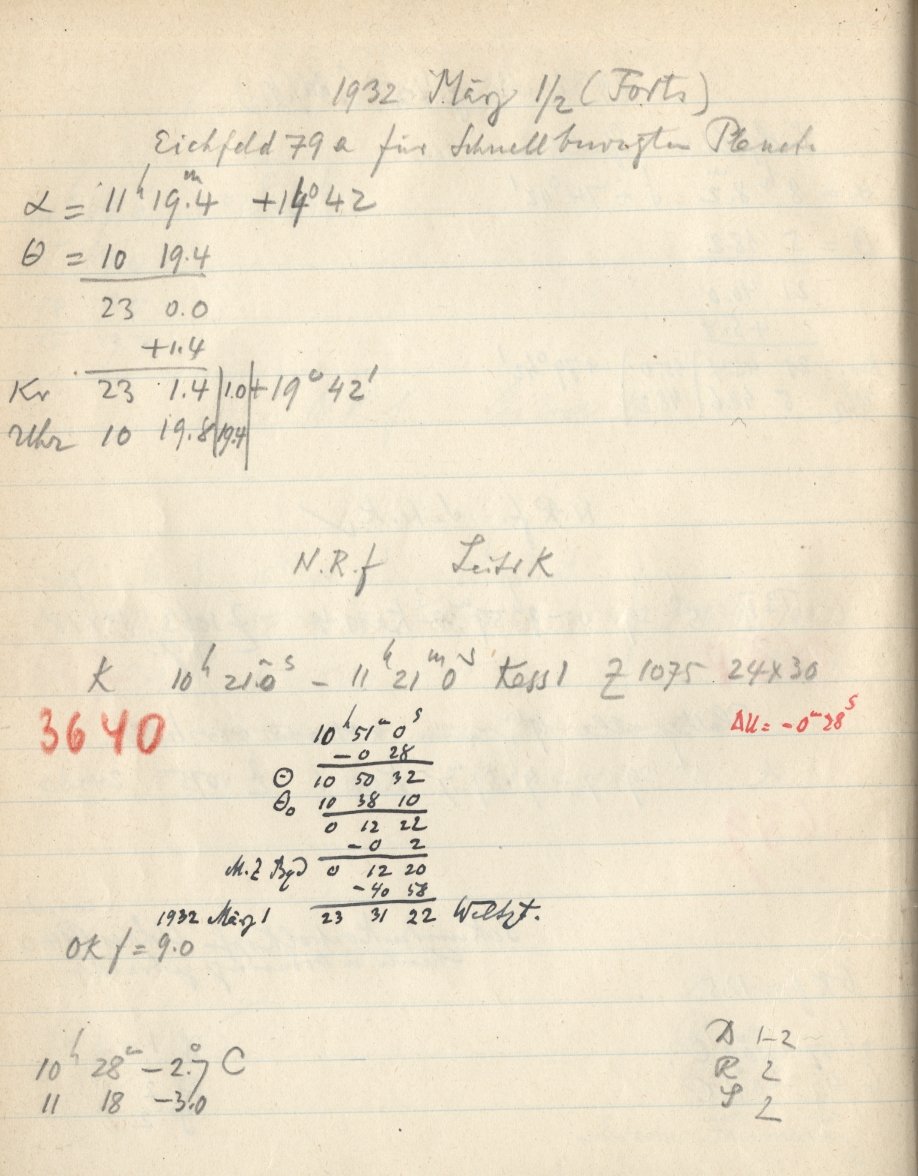 1932 März 1/2 (Forts)
Eichfeld 79a für Schnellbewegten Planet.
α = 11ʰ 19ᵐ.4 +14° 42
θ = 10 19.4
23 0.0
+1.4
Kr 23 1.4 | 1.0 | +19° 42'
Uhr 10 19.8 | 19.4
N.R.f Leitr K
K 10ʰ 21ᵐ0ˢ – 11ʰ 21ᵐ 0ˢ Kass 1 Z 1075 24x30
3640 ΔU = -0ᵐ28ˢ
10ʰ 51ᵐ 0ˢ
-0 28
Θ 10 50 32
Θ₀ 10 38 10
0 12 22
-0 2
M.Z Bgd 0 12 20
-40 58
1932 März 1 23 31 22 Weltzt.
OK f = 9.0
10ʰ 28ᵐ -2.°7 C
11 18 -3.0
D 1-2
R 2
S 2